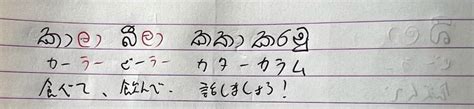 කාලා බීලා කතා කරමු
カーラー ビーラー カターカラム
食べて、飲んで、話しましょう!